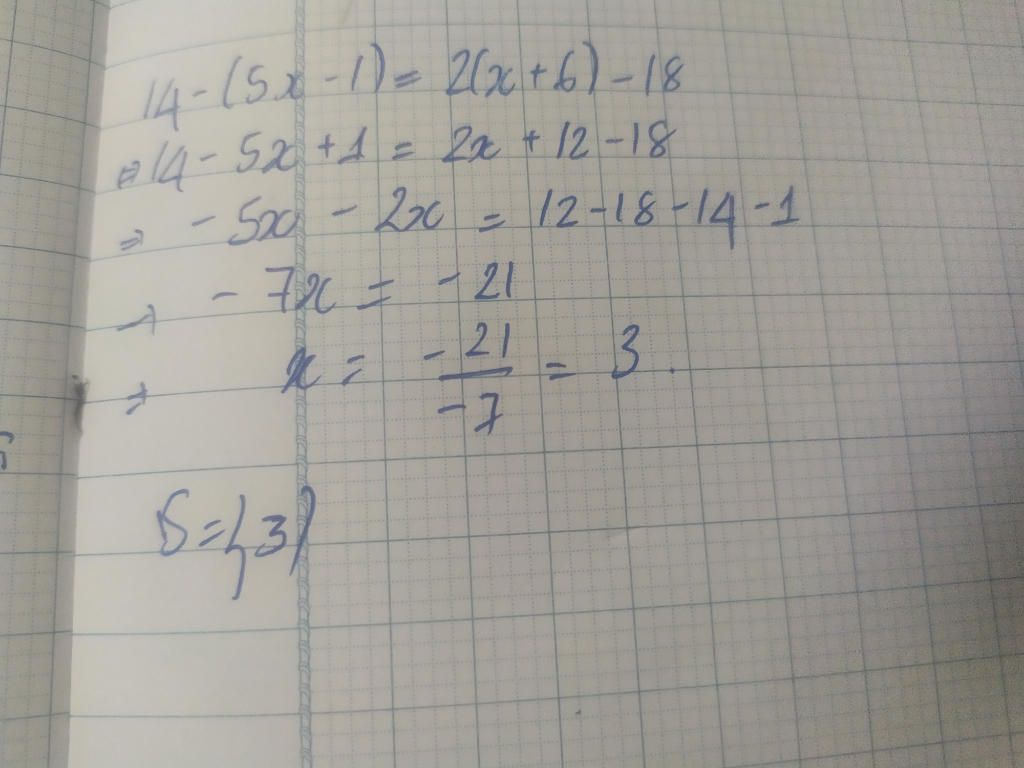 14 - (5x - 1) = 2(x + 6) - 18
⇒ 14 - 5x + 1 = 2x + 12 - 18
⇒ - 5x - 2x = 12 - 18 - 14 - 1
→ - 7x = - 21
⇒ x = -21/-7 = 3.
S = {3}